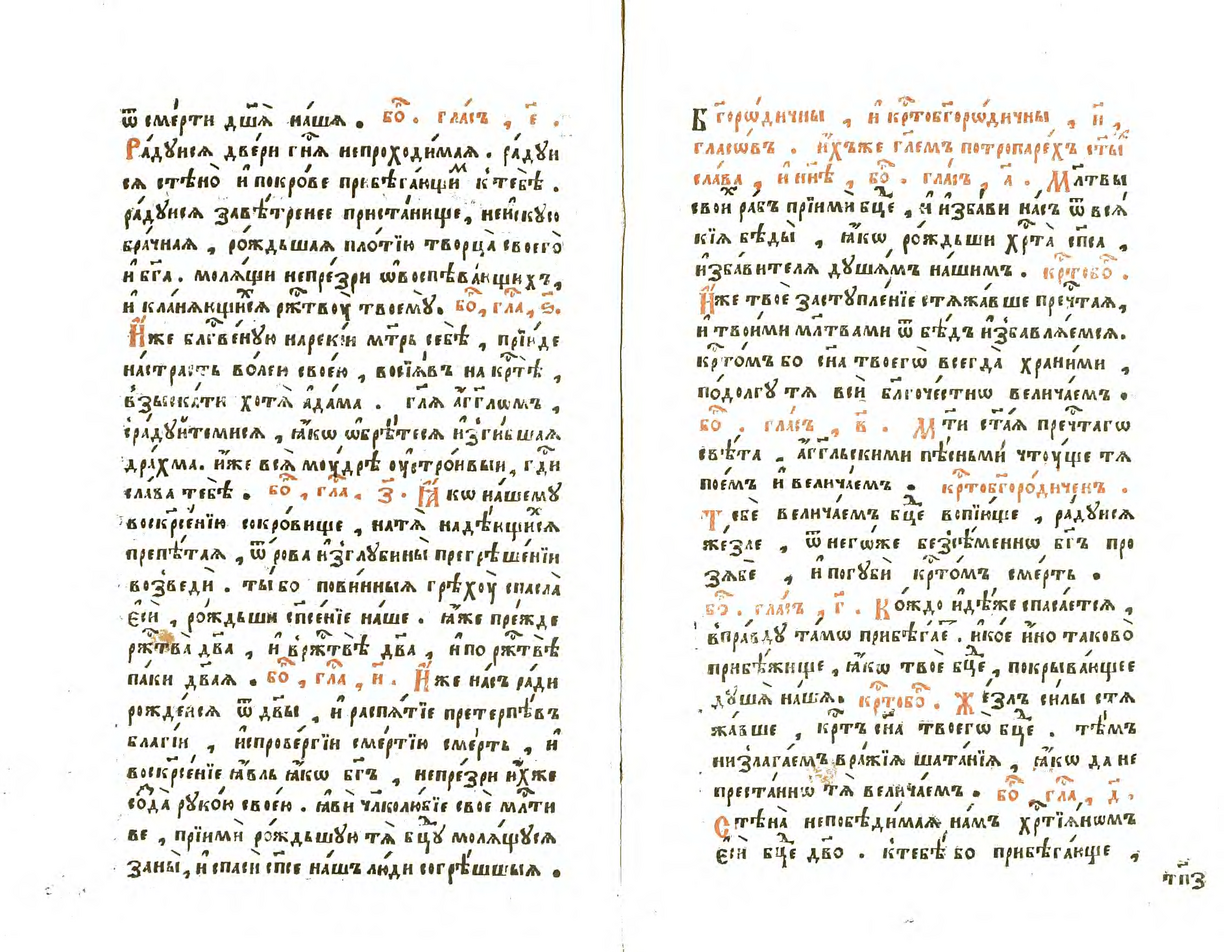 ѿ сме́рти дш҃а̀ на́ша . бо̑ . гла́съ , є҃ .
Ра́дуися две́ри гн҃ѧ непроходи́мая . ра́дуи
ся стѣно̀ и҆ покро́ве прибѣга́ющиⷨ к̾тебѣ̀ .
ра́дуися завѣ́тренее приста́нище , неи҆скусо
бра́чная , ро́ждьшая пло́тїю творца̀ своего̀
и҆ бг҃а . моля́щи непре́зри ѡ҆воспѣва́ющихъ ,
и҆ кла́няющиⷯся ржⷭ҇твоу̀ твоему̀ . боⷢ҇ , гла , ѕ҃ .
И҆́же блгⷭ҇ве́ную наре́кїи мт҃рь себѣ̀ , прїи́де
на́страсть во́лею своею̀ , восїя́въ на крⷭ҇тѣ̀ ,
взыска́ти хотя̀ а҆да́ма . гл҃я а҆́гг҃лѡмъ ,
сра́дуи́темися , ꙗ҆́кѡ ѡ҆брѣ́теся и҆зги́бшая
дра́хма . и҆́же вся̀ моу́дрѣ оу҆стро́ивыи , гд҃и
сла́ва тебѣ̀ . бо̑ , гла . з҃ . Ꙗ҆́ кѡ на́шему
воскрⷭ҇е́нїю сокро́вище , на́тя надѣ́ющиⷯся
препѣ́тая , ѿ ро́ва и҆зглубины̀ прегрѣше́нїи
возведѝ . ты̀ бо пови́нныя грѣхоу̀ спасла̀
є҆сѝ , ро́ждьши спⷭ҇е́нїе на́ше . ꙗ҆́же пре́жде
ржⷭ҇тва̀ дв҃а , и҆ вржⷭ҇твѣ̀ дв҃а , и҆ по ржⷭ҇твѣ̀
па́ки двⷭ҇ая . бо̑ , гла , и҃ . И҆́же на́съ ра́ди
рожде́ися ѿ дв҃ы , и҆ распя́тїе претерпѣ́въ
благі́и , испрове́ргїи сме́ртїю сме́рть , и҆
воскрⷭ҇е́нїе ꙗ҆́вль ꙗ҆́кѡ бг҃ъ , непре́зри и҆́хже
со́зда руко́ю свое́ю . ꙗ҆вѝ чл҃колю́бїе своѐ млⷭ҇ти
ве , прїимѝ ро́ждьшую тя̀ бцⷣу моля́щуся
заны̀ , и҆ спасѝ спⷭ҇е на́шъ лю́ди согрѣ́шшыя .
Бг҃оро́дичны , и҆ крⷭ҇тобг҃оро́дичны , и҃ ,
гласѡ́въ . и҆́хъже гл҃емъ потропаре́хъ ст҃ы́ⷯ
сла́ва , и҆ ны́нѣ , бо̑ . гла́съ , а҃ . Мл҃твы
свои́ⷯ ра́бъ прїимѝ бцⷣе , и҆ и҆зба́ви на́съ ѿ вся́
кїя бѣды̀ , ꙗ҆́кѡ ро́ждьши хрⷭ҇та̀ спⷭ҇а ,
и҆зба́вителя душа́мъ на́шимъ . крⷭ҇тобо̑ .
И҆́же твоѐ заступле́нїе стяжа́вше пречⷭ҇тая ,
и҆ твои́ми мл҃твами ѿ бѣ́дъ и҆збавля́емся .
крⷭ҇то́мъ бо сн҃а твоегѡ̀ всегда̀ храни́ми ,
по́долгу тя̀ всѝ блг҃оче́стнѡ велича́емъ .
бо̑ . гла́съ , в҃ . М҃ти ст҃а́я пречⷭ҇тагѡ
свѣ́та . а҆́гг҃льскими пѣ́сньми чтоу́ще тя̀
пое́мъ и҆ велича́емъ . крⷭ҇тобг҃оро́диченъ .
Тебѐ велича́емъ бцⷣе вопїю́ще , ра́дуися
же́зле , ѿ негѡ́же безсѣ́меннѡ бг҃ъ про
зя́бе , и҆ погубѝ крⷭ҇то́мъ сме́рть .
бо̑ . гла́съ , г҃ . Ко́ждо и҆дѣ́же спаса́ется ,
впра́вду та́мѡ прибѣга́е . и҆коѐ и҆́но таково̀
прибѣ́жище , ꙗ҆́кѡ твоѐ бцⷣе , покрыва́ющее
ду́ша на́ша . крⷭ҇тобо̑ . Же́злъ си́лы стя
жа́вше , крⷭ҇тъ сн҃а твоегѡ̀ бцⷣе . тѣ́мъ
низлага́емъ вра́жїя шата́нїя , ꙗ҆́кѡ да не
преста́ннѡ тя̀ велича́емъ . бо̑ , гла , д҃ .
Стѣна̀ непобѣди́мая на́мъ хрⷭ҇тїя́нѡмъ
є҆сѝ бцⷣе дв҃о . к̾тебѣ́ бо прибѣга́юще ,
тп҃з